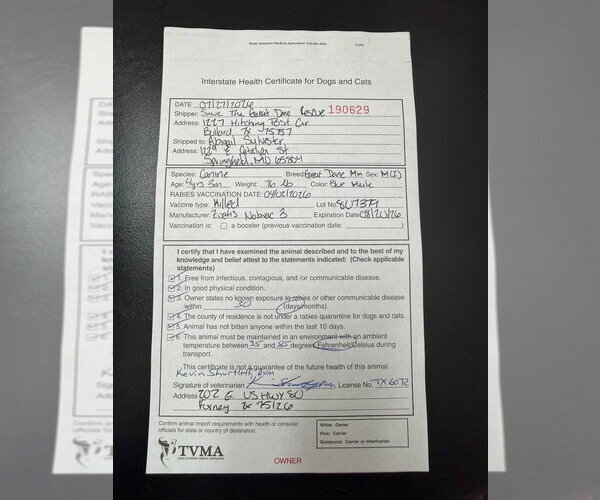 Interstate Health Certificate for Dogs and Cats
DATE 07/27/2026
Shipper: Save The Great Dane Rescue 190629
Address: 1227 Hitching Post Cir
Bullard TX 75757
Shipped to: Abigail Sylvester
Address: E St
Springfield, MO 65804
Species: Canine Breed: Great Dane Mix Sex: M(I)
Age: 4yrs 3m Weight: 76 lb Color: Blue Merle
RABIES VACCINATION DATE: 04/02/2026
Vaccine type: Killed Lot No
Manufacturer: Zoetis 3 Expiration Date
Vaccination is: a booster (previous vaccination date: )
I certify that I have examined the animal described and to the best of my
knowledge and belief attest to the statements indicated: (Check applicable
statements)
1. Free from infectious, contagious, and /or communicable disease.
2. In good physical condition.
3. Owner states no known exposure to rabies or other communicable disease
within 30 (days/months).
4. The county of residence is not under a rabies quarantine for dogs and cats.
5. Animal has not bitten anyone within the last 10 days.
6. This animal must be maintained in an environment with an ambient
temperature between 35 and 85 degrees Fahrenheit/Celsius during
transport.
This certificate is not a guarantee of the future health of this animal.
Kevin Shurtleff, DVM
Signature of veterinarian License No. TX 6072
Address 202 E. US HWY 80
Forney TX 75126
Confirm animal import requirements with health or consular
officials for state or country of destination.
White: Owner
Pink: Carrier
Goldenrod: Carrier or Veterinarian
TVMA
OWNER